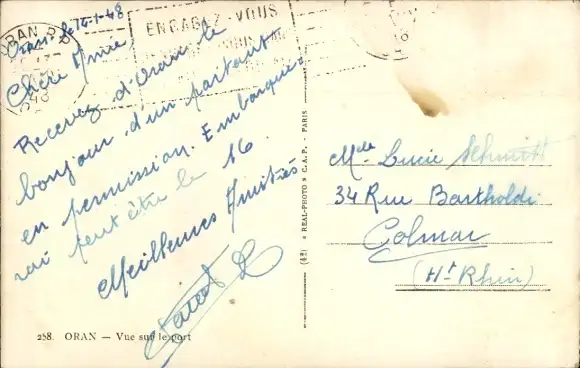 ORAN R.P.
ENGAGEZ-VOUS
Oran, le 14-1-48
Chère Amie,
Recevez d'Oran le
bonjour d'un partant
en permission. Embarque-
rai peut être le 16
Meilleures Amitiés
288. ORAN — Vue sur le port
(42) REAL-PHOTO C.A.P. - PARIS
Mlle Lucie Schmitt
34 Rue Bartholdi
Colmar
(Ht Rhin)